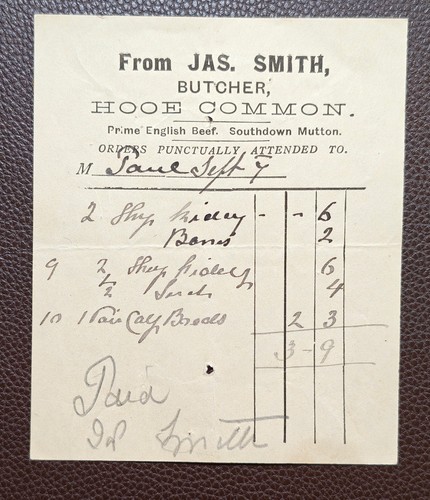 From JAS. SMITH,
BUTCHER,
HOOE COMMON.
Prime English Beef. Southdown Mutton.
ORDERS PUNCTUALLY ATTENDED TO.
M Sept 7
2 Shp Kidny - - 6
Bones 2
9 2 Shep Kidnys 6
4
10 1 Pair Calf Breds 2 3
3 - 9
Paid
Smith